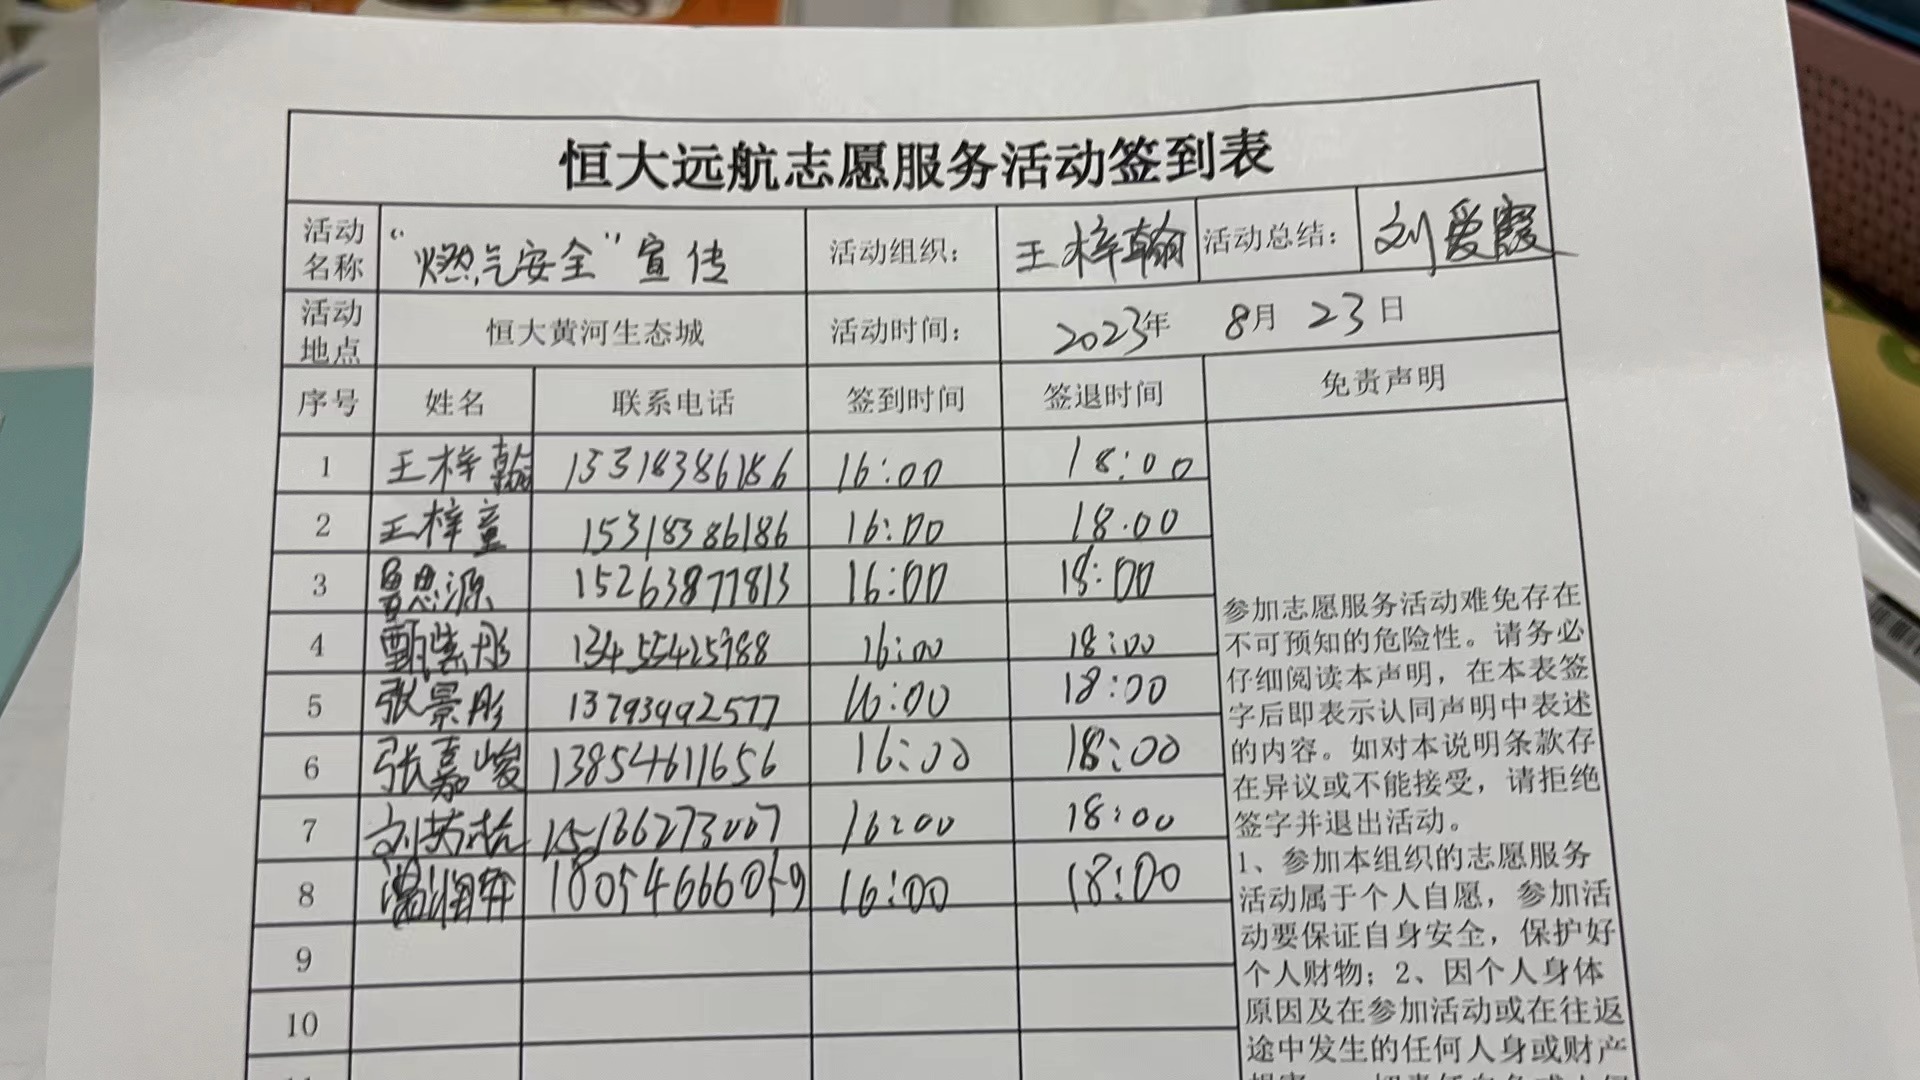 恒大远航志愿服务活动签到表
活动名称 “燃气安全”宣传 活动组织： 王梓翰 活动总结： 刘爱霞
活动地点 恒大黄河生态城 活动时间： 2023年 8月 23日
序号 姓名 联系电话 签到时间 签退时间 免责声明
1 王梓翰 15318386186 16:00 18:00
2 王梓童 15318386186 16:00 18:00
3 鲁思源 15263877813 16:00 18:00
4 甄紫彤 13455425988 16:00 18:00
5 张景彤 13793992577 16:00 18:00
6 张嘉峻 13854611656 16:00 18:00
7 刘芳杭 15166273007 16:00 18:00
8 潞润轩 18054666059 16:00 18:00
9
10
参加志愿服务活动难免存在
不可预知的危险性。请务必
仔细阅读本声明，在本表签
字后即表示认同声明中表述
的内容。如对本说明条款存
在异议或不能接受，请拒绝
签字并退出活动。
1、参加本组织的志愿服务
活动属于个人自愿，参加活
动要保证自身安全，保护好
个人财物；2、因个人身体
原因及在参加活动或在往返
途中发生的任何人身或财产